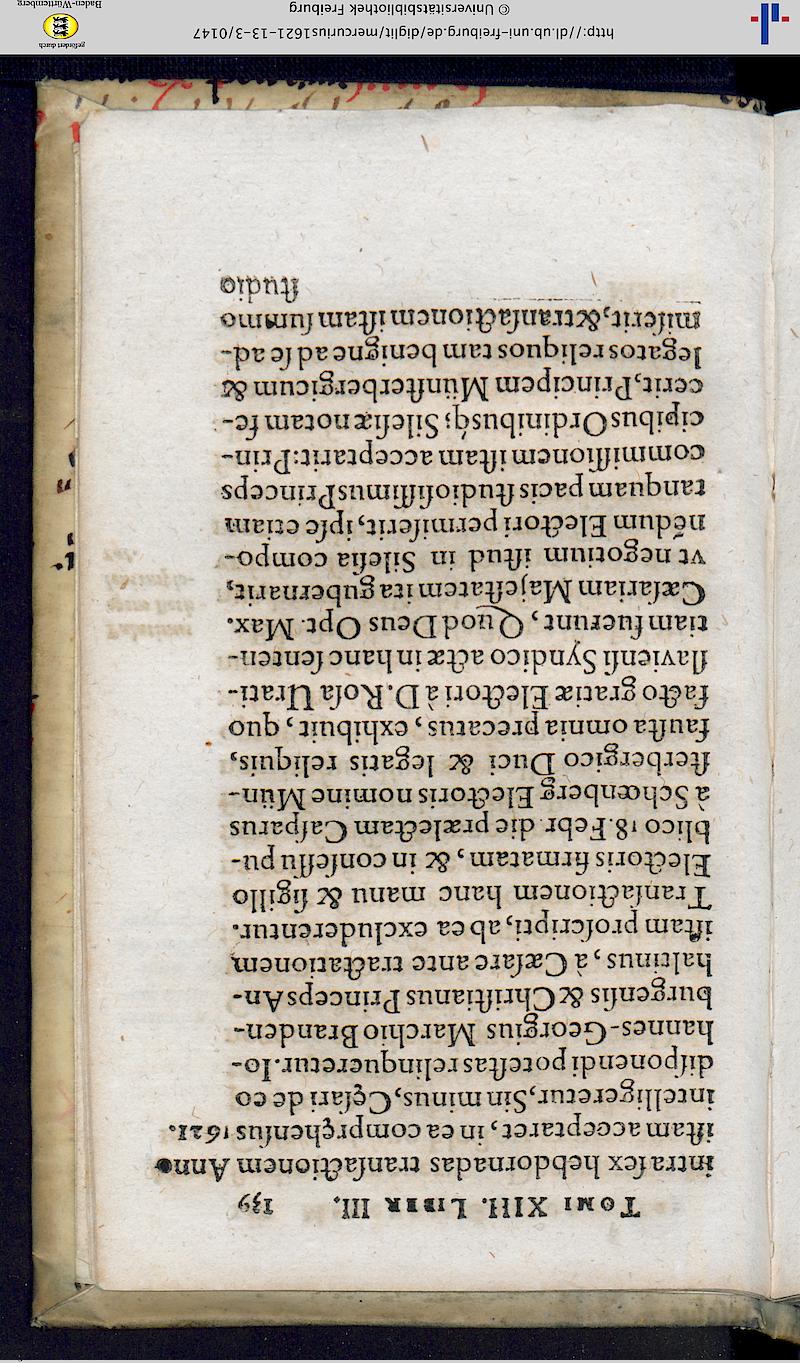 TOMI XIII. LIBER III. 139
intra sex hebdomadas transactionem Anno
istam acceptaret, in ea comprehensus 1621.
intelligeretur, Sin minus, Cęsari de eo
disponendi potestas relinqueretur. Io-
hannes-Georgius Marchio Branden-
burgensis & Christianus Princeps An-
haltinus, à Cæsare ante tractationem
istam proscripti, ab ea excluderentur.
Transactionem hanc manu & sigillo
Electoris firmatam, & in consessu pu-
blico 18. Febr. die prælectam Casparus
à Schœnberg Electoris nomine Mün-
sterbergico Duci & legatis reliquis,
fausta omnia precatus, exhibuit, quo
facto gratiæ Electori à D. Rosa Urati-
slaviensi Syndico actæ in hanc senten-
tiam fuerunt, Quod Deus Opt. Max.
Cæsariam Majestatem ita gubernarit,
vt negotium istud in Silesia compo-
nēdum Electori permiserit, ipse etiam
tanquam pacis studiosissimus Princeps
commissionem istam acceptarit: Prin-
cipibus Ordinibusq́; Silesiæ notam fe-
cerit, Principem Münsterbergicum &
legatos reliquos tam benigne ad se ad-
miserit, & transactionem istam summo
studio
http://dl.ub.uni-freiburg.de/diglit/mercurius1621-13-3/0147
© Universitätsbibliothek Freiburg
gefördert durch
Baden-Württemberg